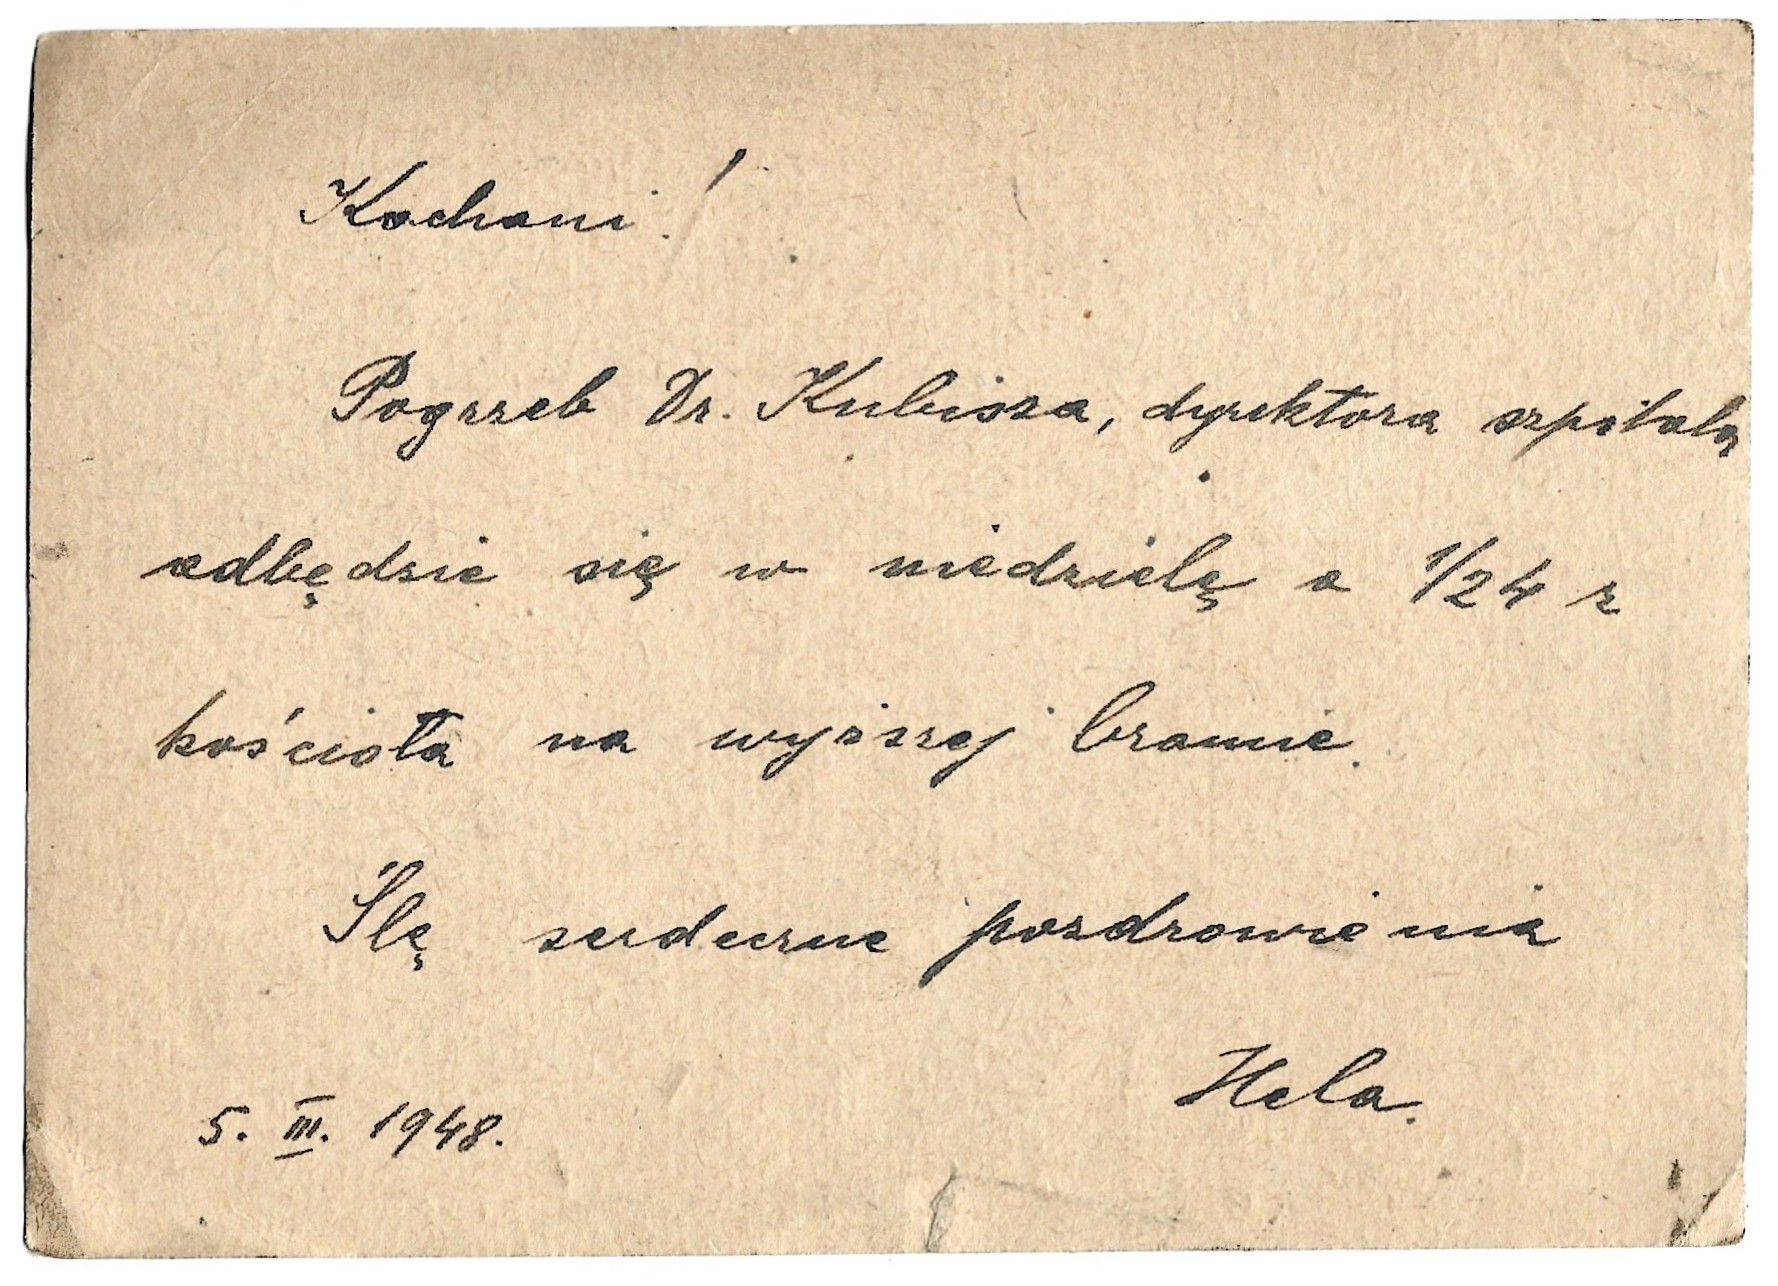 Kochani!
Pogrzeb Dr. Kubisza, dyrektora szpitala,
odbędzie się w niedzielę o 1/24 z
kościoła na wyższej bramie.
Ślę serdeczne pozdrowienia
Hela.
5. III. 1948.